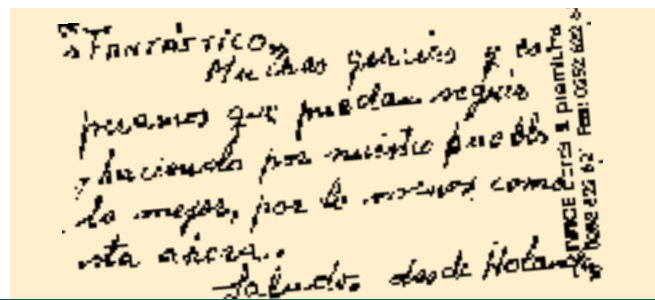 ¡Fantástico,
Muchas gracias y es
peramos que puedan seguir
y haciendo por nuestro pueblo
lo mejor, por lo menos como
esta ahora.
Saludos desde Holan